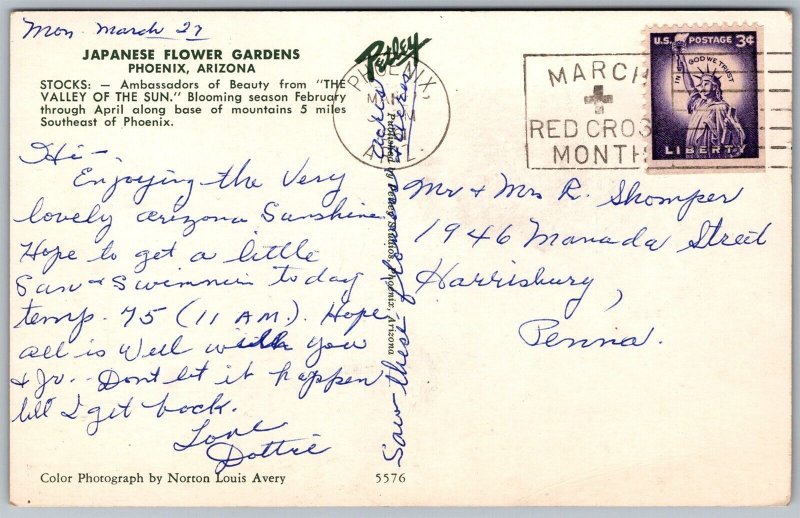 Mon. March 27
JAPANESE FLOWER GARDENS
PHOENIX, ARIZONA
STOCKS: — Ambassadors of Beauty from "THE
VALLEY OF THE SUN." Blooming season February
through April along base of mountains 5 miles
Southeast of Phoenix.
Hi —
Enjoying the Very
lovely Arizona Sunshine
Hope to get a little
Sun & Swimmin today
temp. 75 (11 AM). Hope
all is Well with you
& Jr. Dont let it happen
till I get back.
Love
Dottie
Color Photograph by Norton Louis Avery
5576
Petley
Published by Petley Studios, Phoenix, Arizona
Saw these flowers acres & acres
PHOENIX,
MAR
M
ARIZ.
MARCH
RED CROSS
MONTH
U.S. POSTAGE 3¢
IN GOD WE TRUST
LIBERTY
Mr & Mrs R. Shomper
1946 Manada Street
Harrisburg,
Penna.